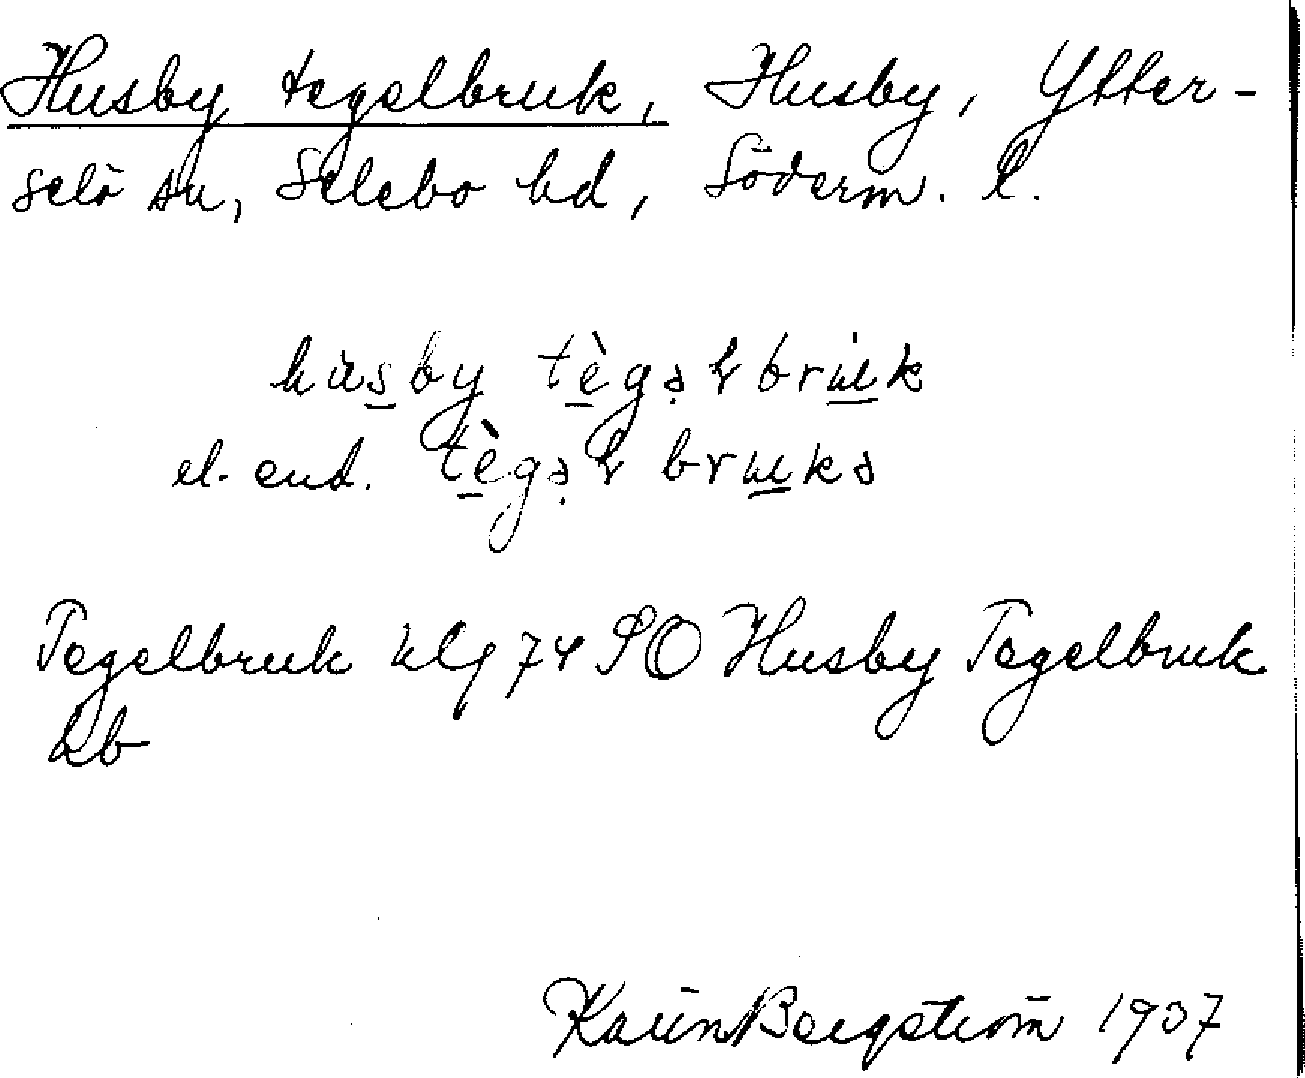 Husby tegelbruk, Husby, Ytter-
selö sn, Selebo hd, Söderm. l.
hùsby tègəɫbrùk
el. end. tègəɫbrukə
Tegelbruk klg 74 SO Husby Tegelbruk
kb
Karin Bergström 1937